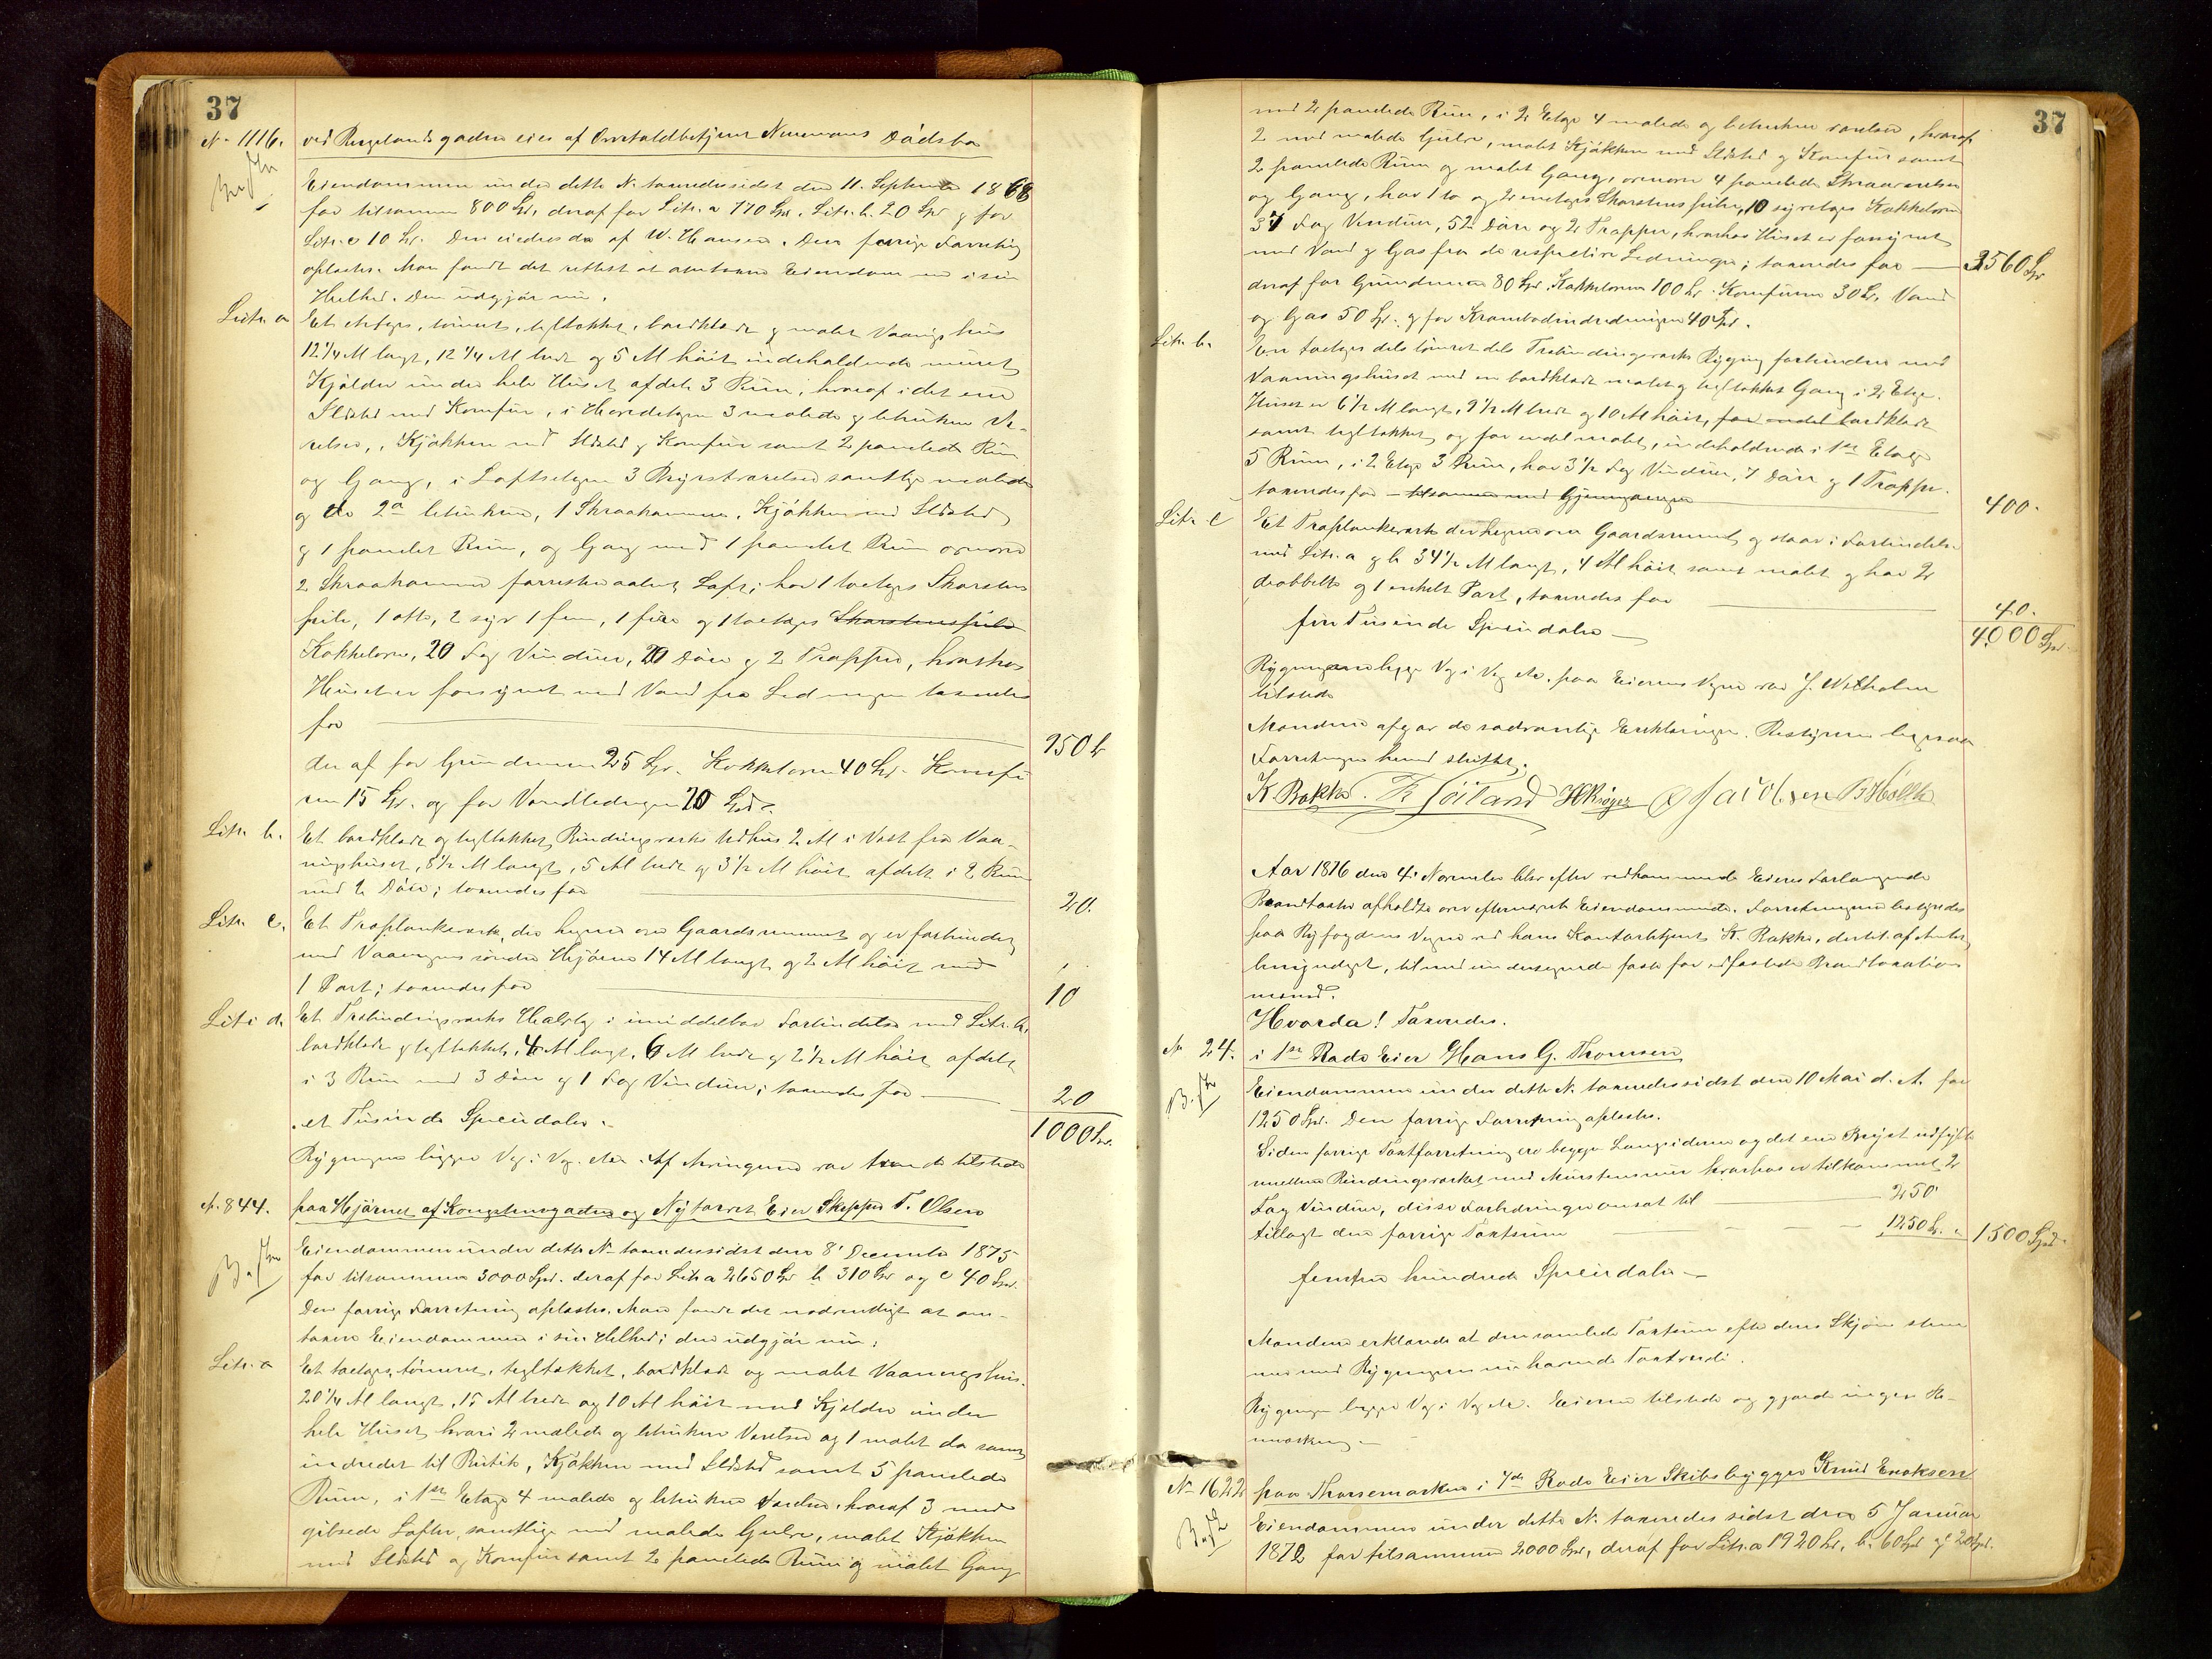 37
No 1116. ved Bergelandsgaden eies af Overtoldbetjent Neumans Dødsbo
Eiendommen under dette No. taxeredes sidst den 11. September 1868
for tilsammen 800 Spd., deraf for Litr. a 770 Spd., Litr. b. 20 Spd. og for
Litr. c 10 Spd. Den eiedes da af W. Hansen. Den forrige Forretning
oplæstes. Man fandt det rettest at omtaxere Eiendommen i sin
Helhed. Den udgjør nu:
Litr. a Et etetages, tømret, tegltækket, bordklædt og malet Vaaningshus
12 1/4 Al langt, 12 1/4 Al bredt og 5 Al høit indeholdende muret
Kjælder under hele Huset afdelt 3 Rum, hvoraf i det ene
Ildsted med Komfur, i Hovedetagen 3 malede og betrukne Væ-
relser, Kjøkken med Ildsted og Komfur samt 2 panelede Rum
og Gang, i Loftsetagen 3 Kvistværelser samtlige malede
og de 2de betrukne, 1 Skraakammer, Kjøkken med Ildsted
og 1 panelet Rum, og Gang med 1 panelet Rum ovenover
2 Skraakammer forresten aabent Loft; har 1 toetages Skorstens
pibe, 1 otte, 2 syv 1 fem, 1 fire og 1 toetages Skorstenspibe
Kakkelovne, 20 Fag Vinduer, 20 Døre og 2 Trapper, hvorhos
Huset er forsynet med Vand fra Ledningen taxeredes
for 950 Spd
deraf for Grundmuren 25 Spd. Kakkelovne 40 Spd. Komfu
ren 15 Spd. og for Vandledningen 20 Spd.
Litr. b. Et bordklædt og tegltækket Bindingsværks Udhus 2 Al i Vest fra Vaa-
ningshuset, 8 1/2 Al langt, 5 Al bredt og 3 1/2 Al høit afdelt i 2 Rum
med 2 Døre; taxeredes for 20.
Litr. c. Et Træplankeværk, der hegner om Gaardsrummet og er forbundet
med Vaaningens søndre Hjørne 14 Al langt og 2 Al høit med
1 Port; taxeredes for 10
Litr. d. Et Træbindingsværks Halvtag i umiddelbar Forbindelse med Litr. b.
bordklædt og tegltækket, 4 Al langt, 6 Al bredt og 2 1/2 Al høit afdelt
i 3 Rum med 3 Døre og 1 Fag Vinduer; taxeredes for 20
et Tusinde Speciedaler. 1000 Spd.
Bygningerne ligger Væg i Væg etc. Af Arvingerne var tvende tilstede
No. 844. paa Hjørnet af Kongsteensgaden og Nytorvet Eier Skipper T. Olsen
Eiendommen under dette No taxeredes sidst den 8' December 1875
for tilsammen 3000 Spd. deraf for Litr a 2650 Spd b 310 Spd og c 40 Spd.
Den forrige Forretning oplæstes. Man fandt det nødvendigt at om-
taxere Eiendommen i sin Helhed; den udgjør nu:
Litr. a Et toetages, tømret, tegltækket, bordklædt og malet Vaaningshus.
20 1/4 Al langt, 15 Al bredt og 10 Al høit med Kjælder under
hele Huset, hvori 2 malede og betrukne Værelser og 1 malet do samt
indredet til Butik, Kjøkken med Ildsted samt 5 panelede
Rum, i 1ste Etage 4 malede og betrukne Værelser, hvoraf 3 med
gibsede Lofter, samtlige med malede Gulve, malet Kjøkken
med Ildsted og Komfur samt 2 panelede Rum og malet Gang
37
med 2 panelede Rum, i 2 Etage 4 malede og betrukne Værelser, hvoraf
2 med malede Gulve, malet Kjøkken med Ildsted og Komfur samt
2 panelede Rum og malet Gang, ovenover 4 panelede Skraaværelser
og Gang, har 1 to og 2 enetages Skorstenspiber, 10 syvetages Kakkelovne
37 Fag Vinduer, 52 Døre og 2 Trapper, hvorhos Huset er forsynet
med Vand og Gas fra de respective Ledninger; taxeredes for 3560 Spd
deraf for Grundmuren 80 Spd., Kakkelovne 100 Spd. Komfurene 30 Spd. Vand
og Gas 50 Spd. og for Krambodindredningen 40 Spd.
Litr. b. En toetages dels tømret dels Træbindingsværks Bygning forbunden med
Vaaningshuset med en bordklædt malet og tegltækket Gang i 2 Etage.
Huset er 6 1/2 Al langt, 9 1/2 Al bredt og 10 Al høit, for endel bordklædt
samt tegltækket og for endel malet, indeholdende i 1ste Etage
5 Rum, i 2 Etage 3 Rum, har 3 1/2 Fag Vinduer, 7 Døre og 1 Trappe.
taxeredes for tilsammen med Gjennemgangen 400.
Litr. c Et Træplankeværk der hegner om Gaardsrummet og staar i Forbindelse
med Litr. a og b 34 1/2 Al langt, 4 Al høit samt malet og har 2
dobbelte og 1 enkelt Port, taxeredes for 40.
fire Tusinde Speciedaler 4000 Spd.
Bygningerne ligge Væg i Væg etc. paa Eierens Vegne var J. Wilhelm
tilstede
Mændene afgav de sædvanlige Erklæringer. Bestyreren begjærede
Forretningen hermed sluttet.
K. Bakke. T. Søiland H Krøger O Jacobsen B Holck
Aar 1876 den 4. November blev efter vedkommende Eieres Forlangende
Brandtaxter afholdte over efternævnte Eiendommende. Forretningen bestyredes
paa Byfogdens Vegne ved hans Kontorbetjent K. Bakke, dertil af Amtet
bemyndiget, tilmed undertegnede faste for edfæstede Brandtaxations
mænd.
Hvorda! Taxeredes.
No 24. i 1ste Rode Eier Hans G. Thomsen
Eiendommen under dette No. taxeredes sidst den 10 Mai d. A. for
1250 Spd. Den forrige Forretning oplæstes.
Siden forrige Taxtforretning ere begge Langsiderne og det ene Bryst udfyldt
mellem Bindingsværket med Murstensmur hvorhos er tilkommet 2
Fag Vinduer, disse Forbedringer ansat til 250
tillagt den forrige Taxtsum 1250 Spd. 1500 Spd.
femten hundrede Speciedaler
Mændene erklærede at den samlede Taxtsum efter deres Skjøn stem
mer med Bygningens nuhavende Taxtværdi.
Bygningen ligger Væg i Væg etc. Eieren tilstede og gjorde ingen Be-
mærkning.
No 1622 paa Thorsemarken i 7de Rode Eier Skibsbygger Knud Enoksen
Eiendommen under dette No. taxeredes sidst den 5 Januar
1872 for tilsammen 2000 Spd., deraf for Litr. a 1920 Spd., b. 60 Spd og c 20 Spd.